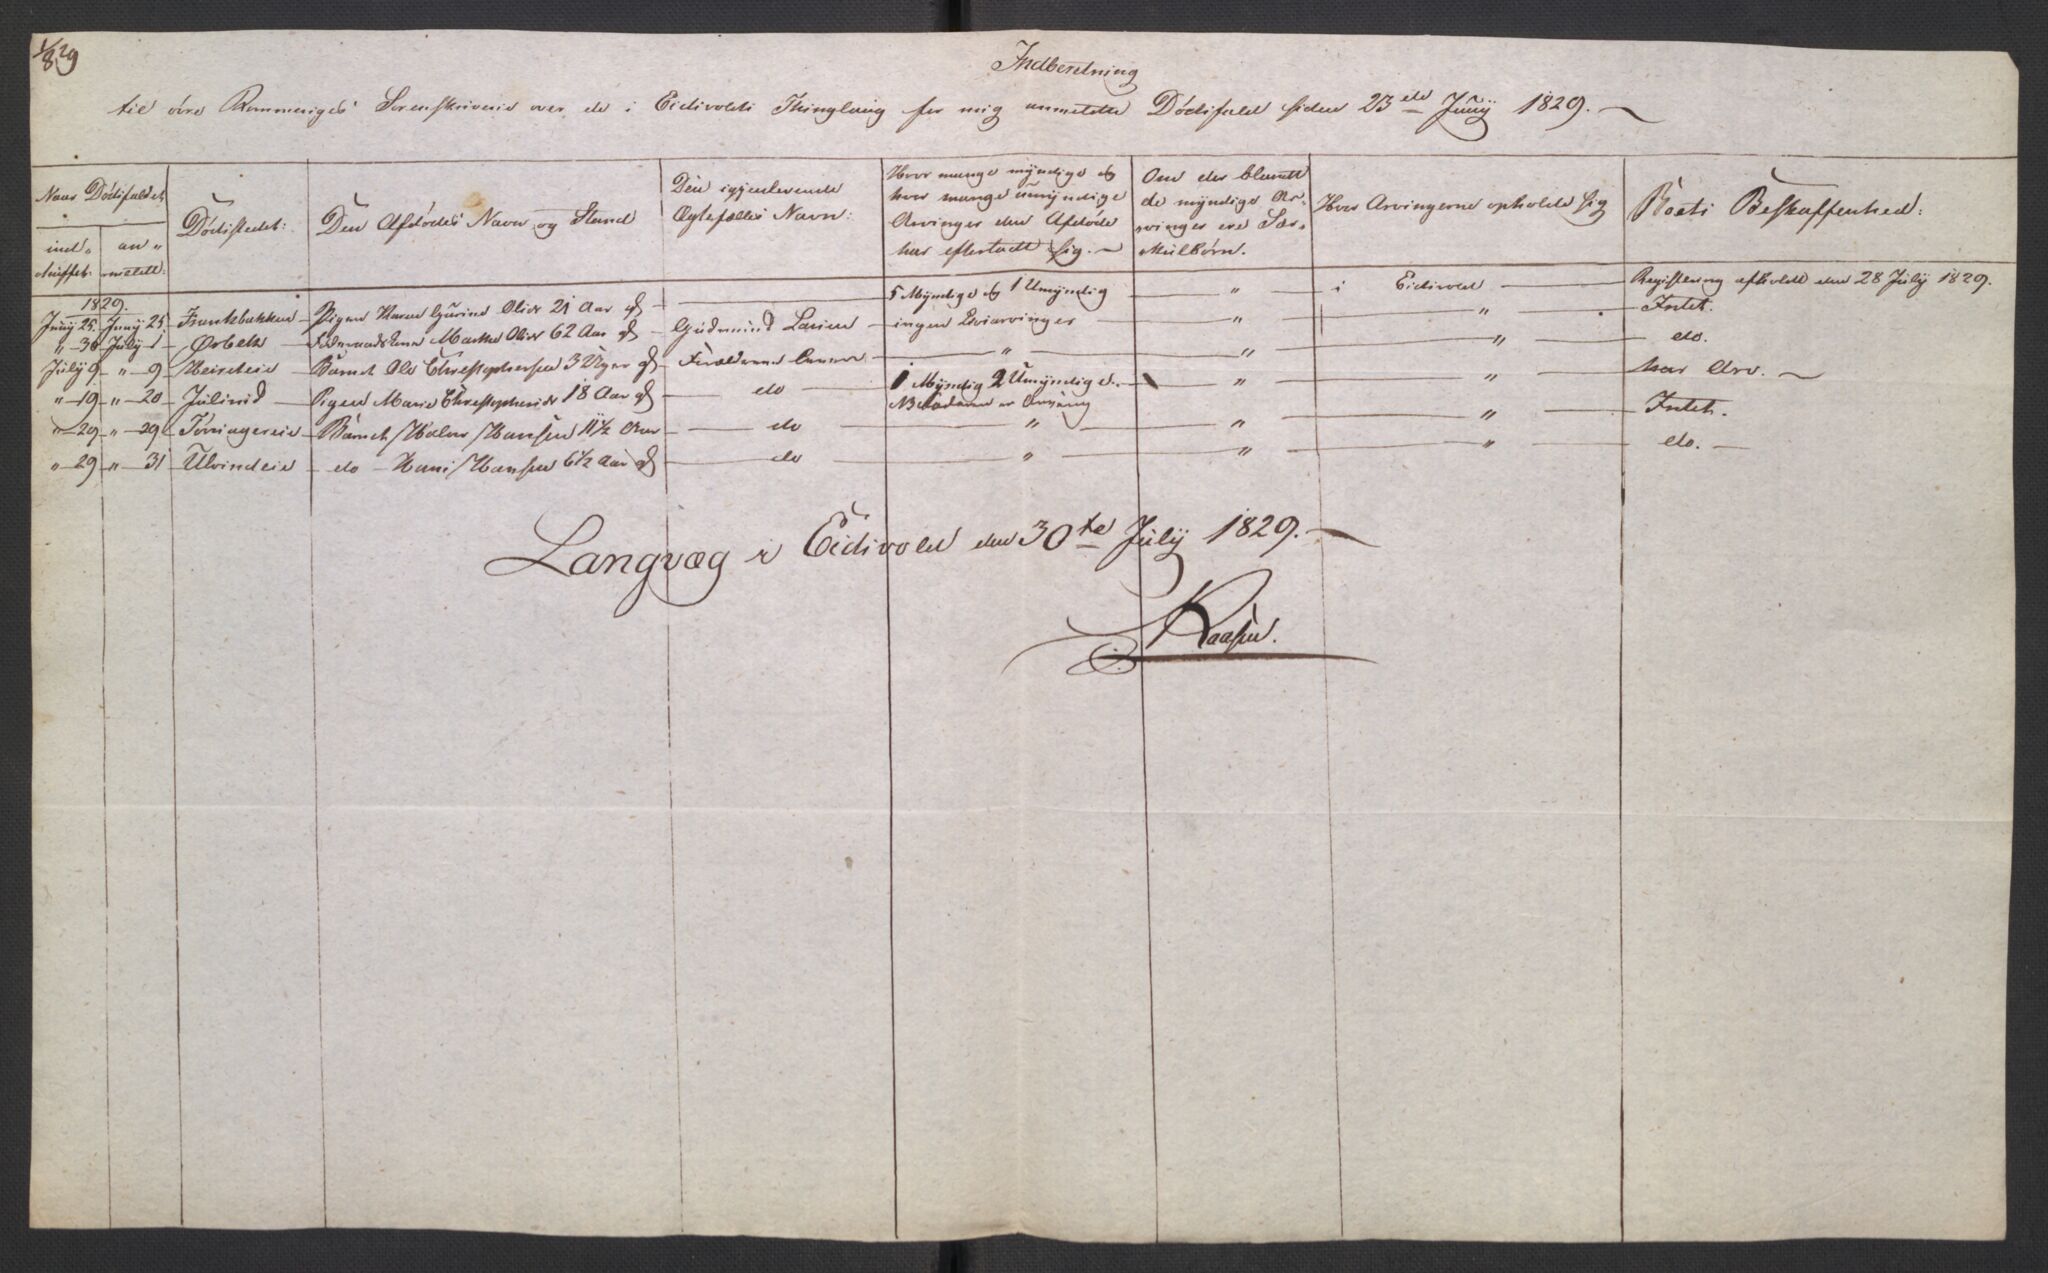 1/8 29
Indberetning
til övre Rommeriges Sorenskriverie over de i Eidsvolds Thinglaug for mig anmeldte Dødsfald siden 23de Juny 1829.
Naar Dødsfaldet
ind-
truffet:
an-
meldt:
Dødsstedet:
Den Afdødes Navn og Stand
Den igjenlevende
Ægtefælles Navn:
Hvor mange myndige og
hvor mange umyndige
Arvinger den Afdøde
har efterladt sig.
Om der blandt
de myndige Ar-
vinger ere Sær-
kulbörn.
Hvor Arvingerne opholde sig
Boets Beskaffenhed:
1829.
Juny 25. Juny 25. Frankbakken Pigen Karen Gurine Olsdr 21 Aar gl — 5 Myndige og 1 Umyndig " i Eidsvold Registering afholdt den 28 July 1829.
" 30 July 1 Ørbek Marthe Olsdr 62 Aar gl Gudmund Larsen ingen Livsarvinger " " Intet.
July 9 " 9 Barnet Ole Christophersen 3 Uger gl Forældrene " " " do.
" 19 " 20 Julsrud Pigen Marie Christophersdr 18 Aar gl do 1 Myndig 2 Umyndige. " " har Arv.
NB
" 29 " 29 Barnet Halvor Hansen 11 1/2 Aar do " " " Intet.
" 29 " 31 Ulvindeie do Hans Hansen 6 1/2 Aar gl do " " " do.
Langvæg i Eidsvold den 30te July 1829.
Kaasen.